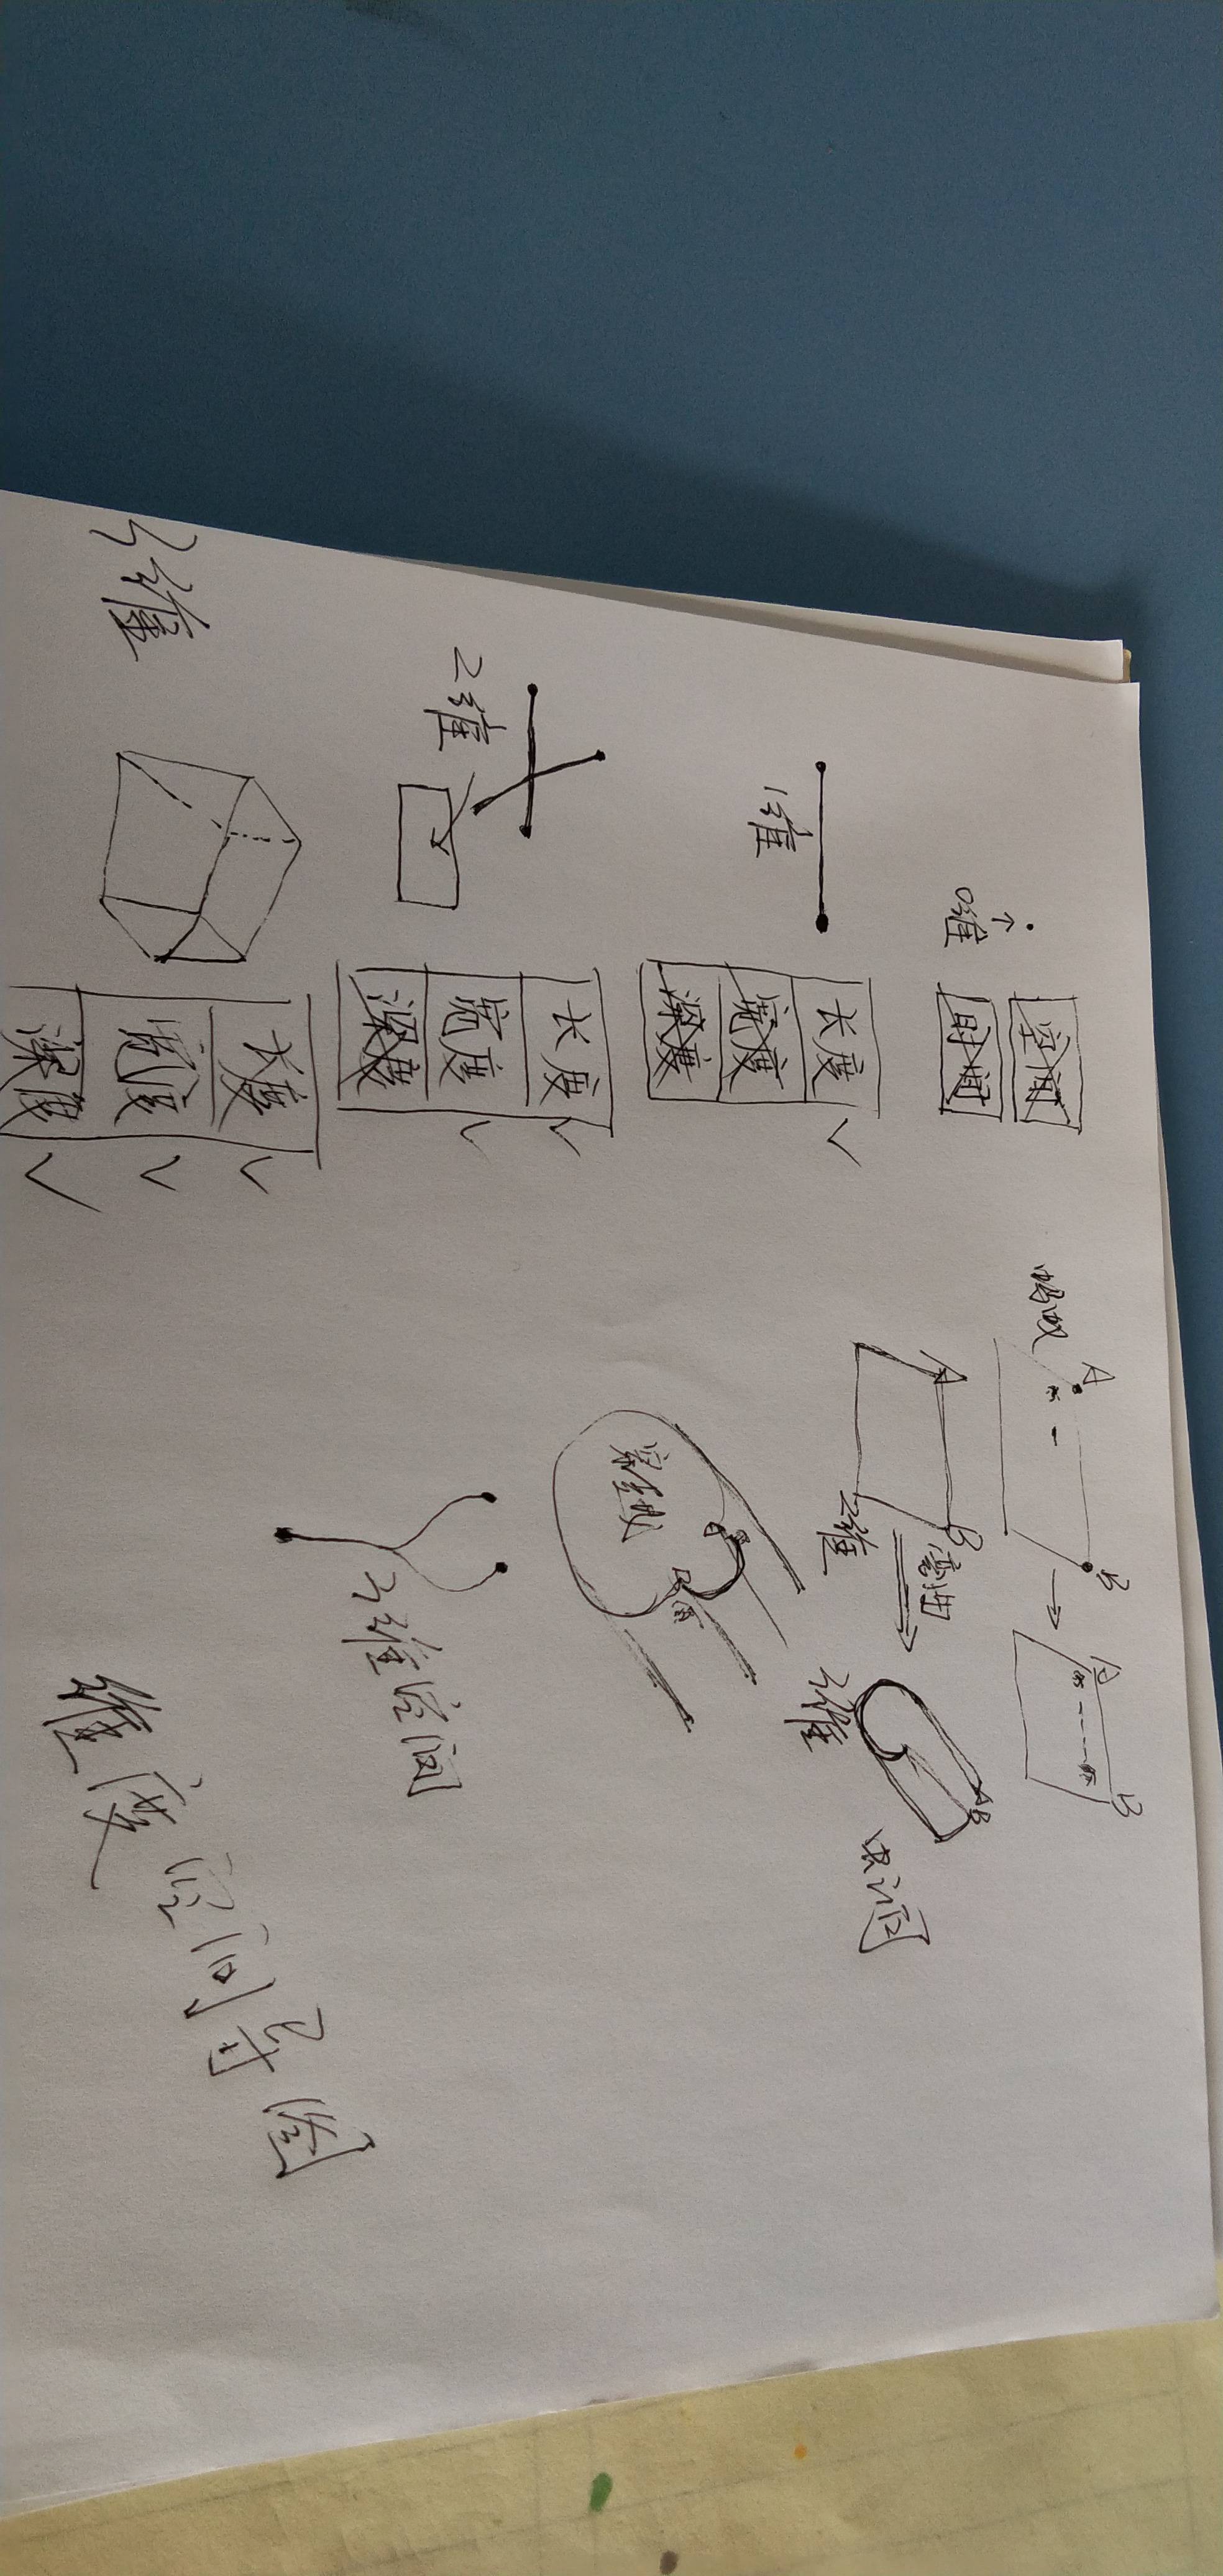 0维
空间
时间
1维
长度
宽度
深度
2维
长度
宽度
深度
3维
长度
宽度
深度
蚂蚁
A
B
A
B
A
B
2维
弯曲
3维
A
B
虫洞
莫比乌
3维空间
维度空间导图